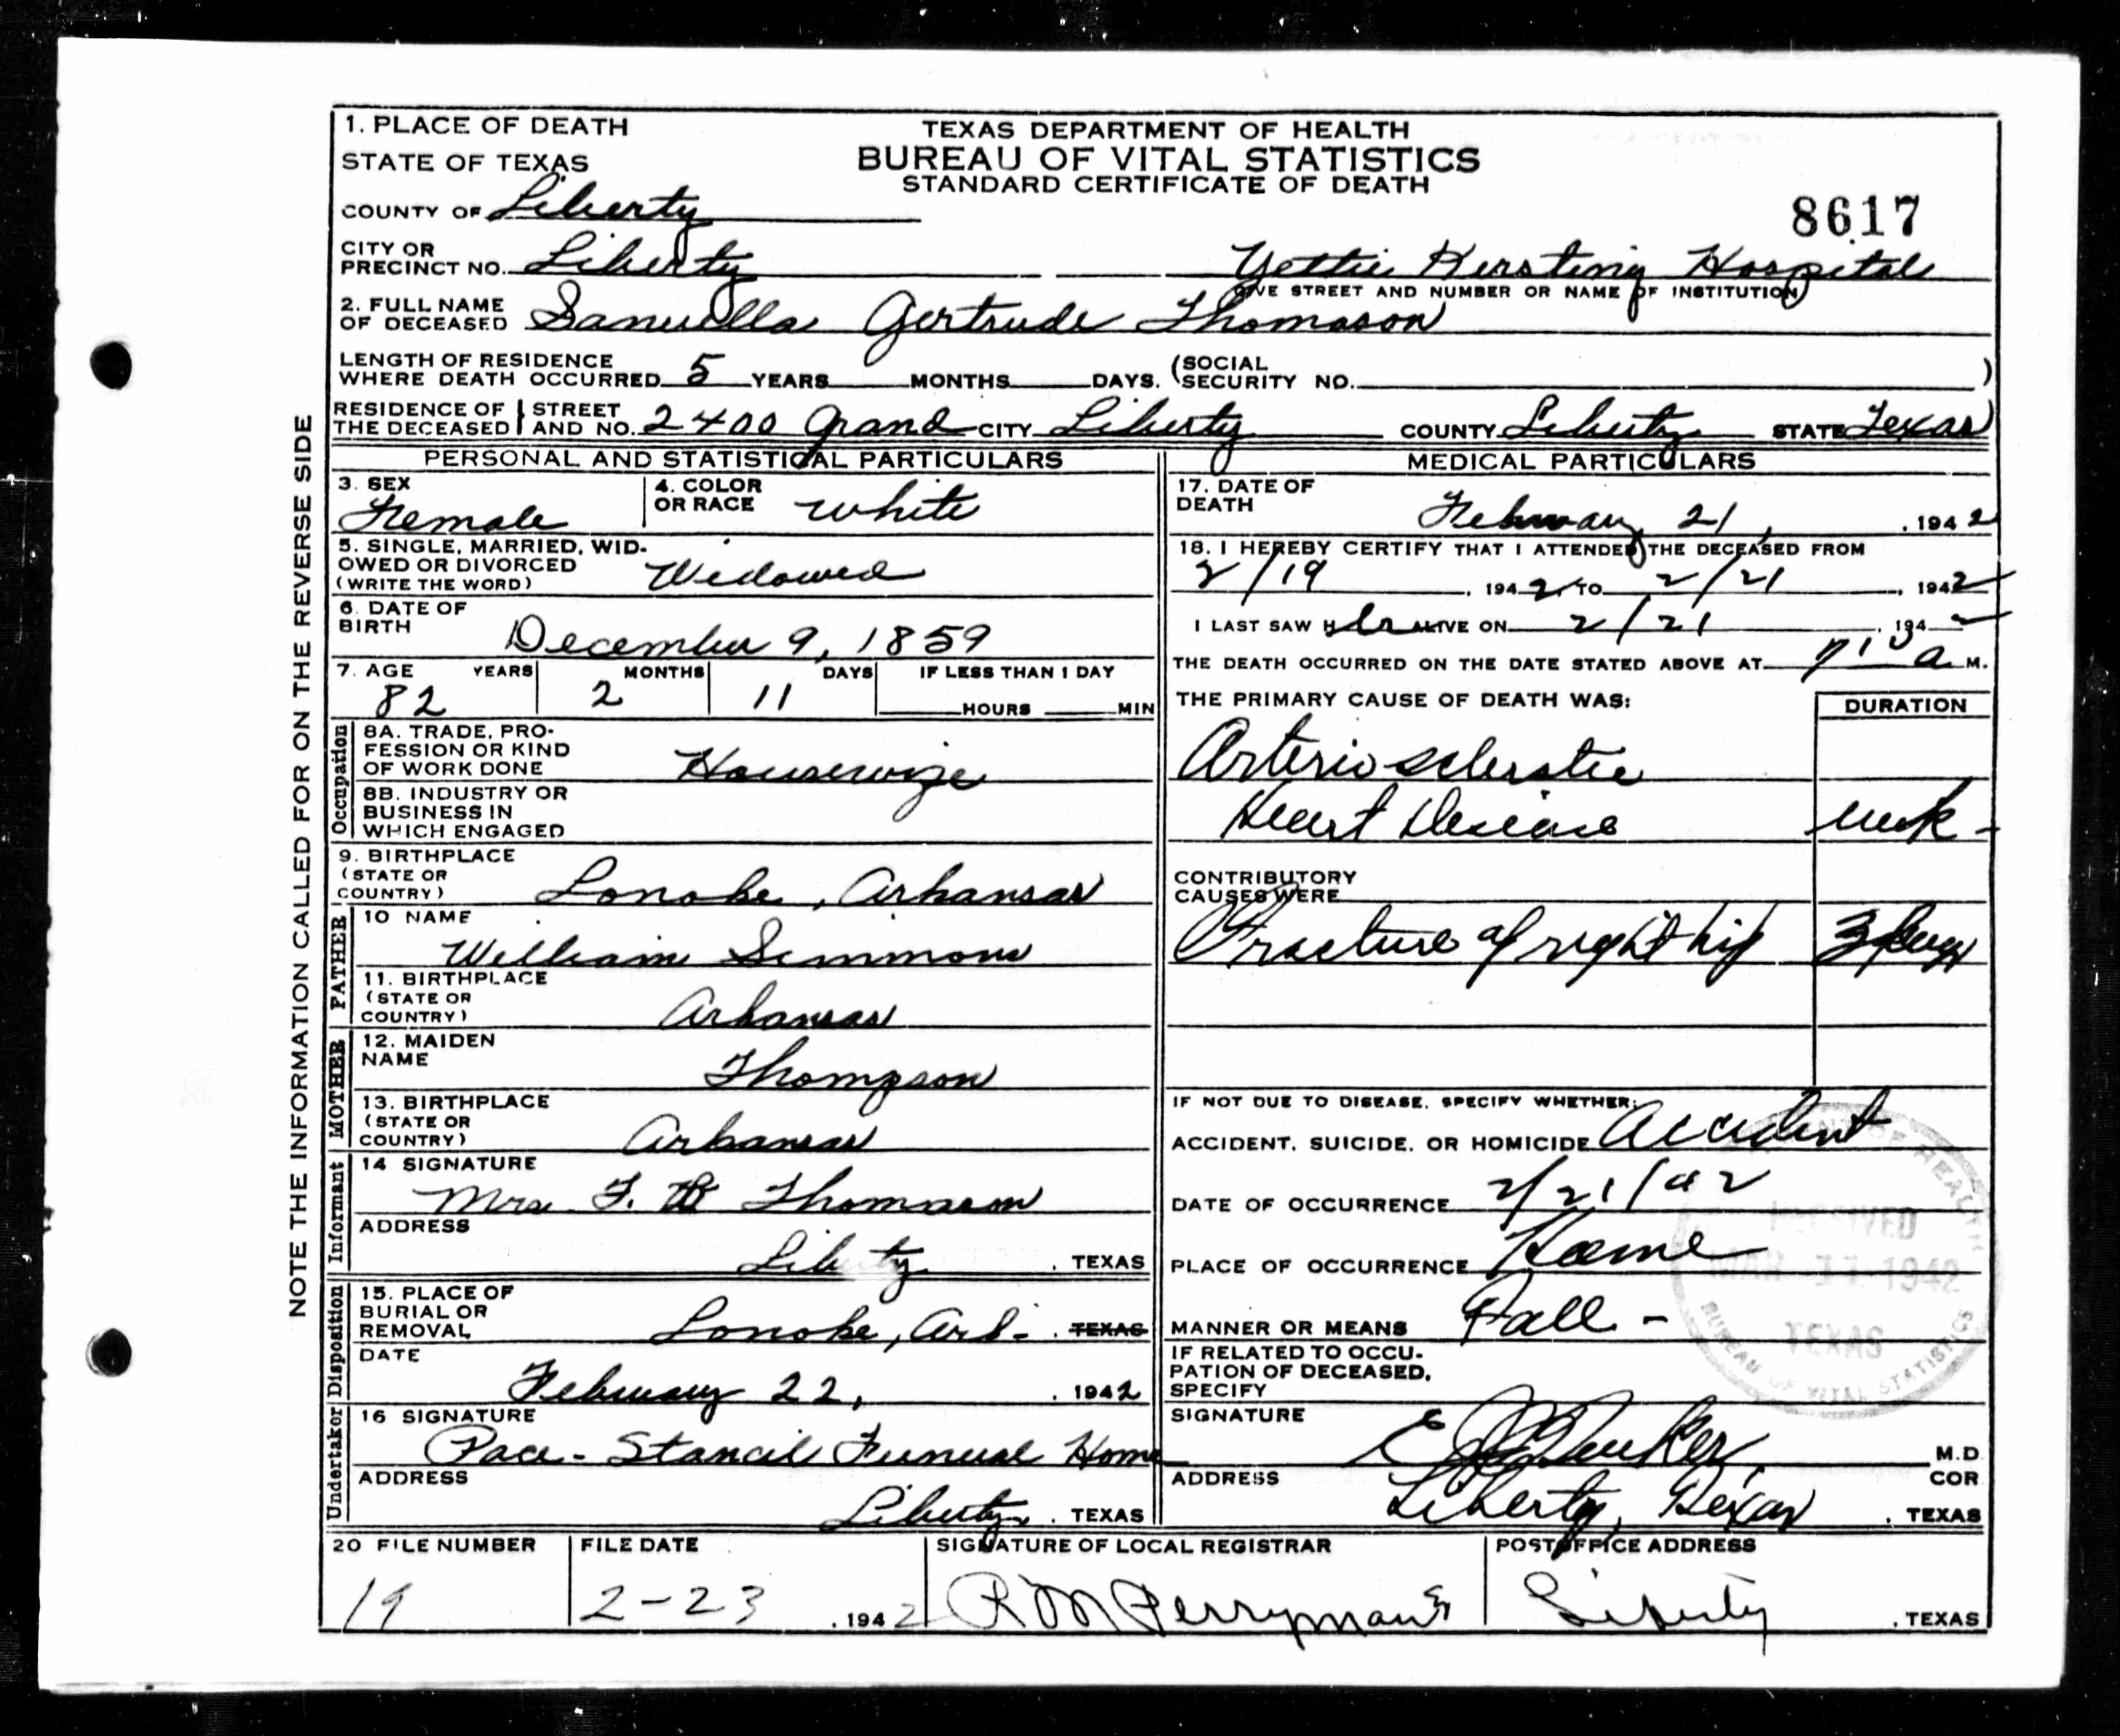 1. PLACE OF DEATH
STATE OF TEXAS
COUNTY OF Liberty
TEXAS DEPARTMENT OF HEALTH
BUREAU OF VITAL STATISTICS
STANDARD CERTIFICATE OF DEATH
8617
CITY OR PRECINCT NO. Liberty Yettie Kersting Hospital
GIVE STREET AND NUMBER OR NAME OF INSTITUTION
2. FULL NAME OF DECEASED Gertrude Thomason
LENGTH OF RESIDENCE WHERE DEATH OCCURRED 5 YEARS MONTHS DAYS. (SOCIAL SECURITY NO. )
RESIDENCE OF THE DECEASED STREET AND NO. 2400 Grand CITY Liberty COUNTY Liberty STATE Texas
PERSONAL AND STATISTICAL PARTICULARS
3. SEX Female
4. COLOR OR RACE White
5. SINGLE, MARRIED, WIDOWED OR DIVORCED (WRITE THE WORD) Widowed
6. DATE OF BIRTH December 9, 1859
7. AGE YEARS MONTHS DAYS IF LESS THAN 1 DAY
82 2 11 HOURS MIN
Occupation
8A. TRADE, PROFESSION OR KIND OF WORK DONE Housewife
8B. INDUSTRY OR BUSINESS IN WHICH ENGAGED
9. BIRTHPLACE (STATE OR COUNTRY) Lonoke, Arkansas
FATHER
10 NAME William Simmons
11. BIRTHPLACE (STATE OR COUNTRY) Arkansas
MOTHER
12. MAIDEN NAME Thompson
13. BIRTHPLACE (STATE OR COUNTRY) Arkansas
Informant
14 SIGNATURE Mrs F. B Thomason
ADDRESS Liberty, TEXAS
Disposition
15. PLACE OF BURIAL OR REMOVAL Lonoke, Ark. TEXAS
DATE February 22, 1942
Undertaker
16 SIGNATURE Pace-Stancil Funeral Home
ADDRESS Liberty, TEXAS
MEDICAL PARTICULARS
17. DATE OF DEATH February 21, 1942
18. I HEREBY CERTIFY THAT I ATTENDED THE DECEASED FROM
2/19, 1942, TO 2/21, 1942
I LAST SAW Her ALIVE ON 2/21 1942
THE DEATH OCCURRED ON THE DATE STATED ABOVE AT a M.
THE PRIMARY CAUSE OF DEATH WAS: DURATION
Arterio sclerotic
Heart Disease unk-
CONTRIBUTORY CAUSES WERE
Fracture of right hip 3 days
IF NOT DUE TO DISEASE, SPECIFY WHETHER:
ACCIDENT, SUICIDE, OR HOMICIDE Accident
DATE OF OCCURRENCE 2/21/42
PLACE OF OCCURRENCE Home
MANNER OR MEANS Fall -
IF RELATED TO OCCUPATION OF DECEASED, SPECIFY
SIGNATURE M.D.
ADDRESS Liberty, Texas COR. , TEXAS
RECEIVED
MAR 1942
TEXAS
BUREAU OF VITAL STATISTICS
20 FILE NUMBER FILE DATE SIGNATURE OF LOCAL REGISTRAR POSTOFFICE ADDRESS
19 2-23, 1942 R M Perryman Liberty, TEXAS
NOTE THE INFORMATION CALLED FOR ON THE REVERSE SIDE